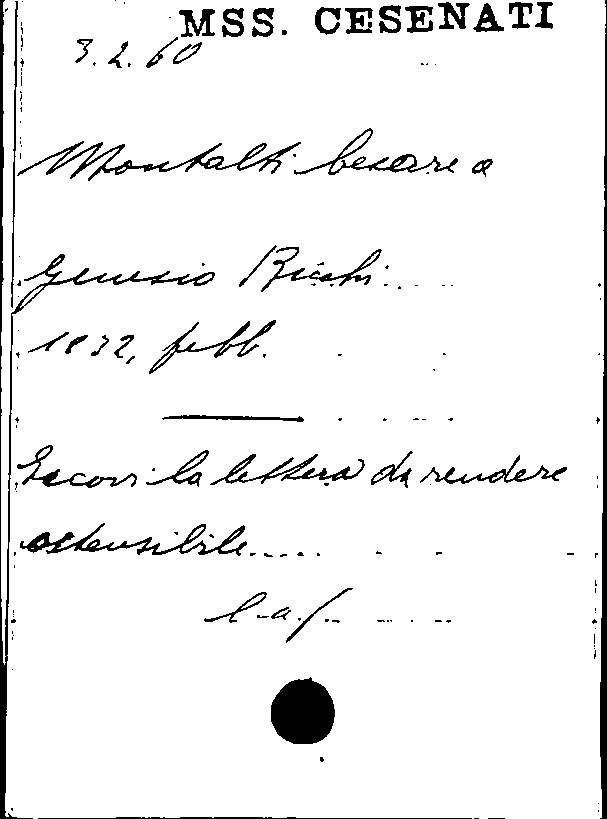 MSS. CESENATI
3.2.60
Montalti Cesare a
Genesio Bicchi
1832, febb.
Eccovi la lettera da rendere
ostensibile.....
l.a.f.